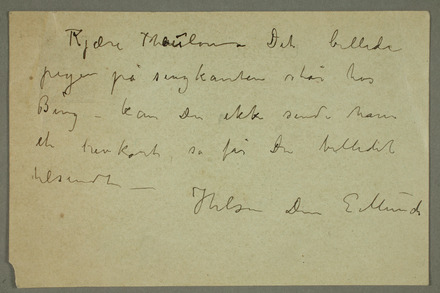 Kjære Thaulow – Det billede
pigen på sengkanten står hos
Bing – kan Du ikke sende ham
et brevkort så får Du billedet
tilsendt –
Hilsen Din E Munch